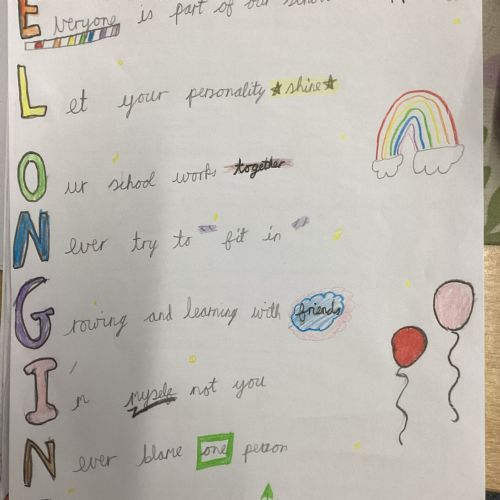 Everyone is part of our school
Let your personality ★shine★
Our school works together
Never try to "fit in"
Growing and learning with friends
I'm myself not you
Never blame one person